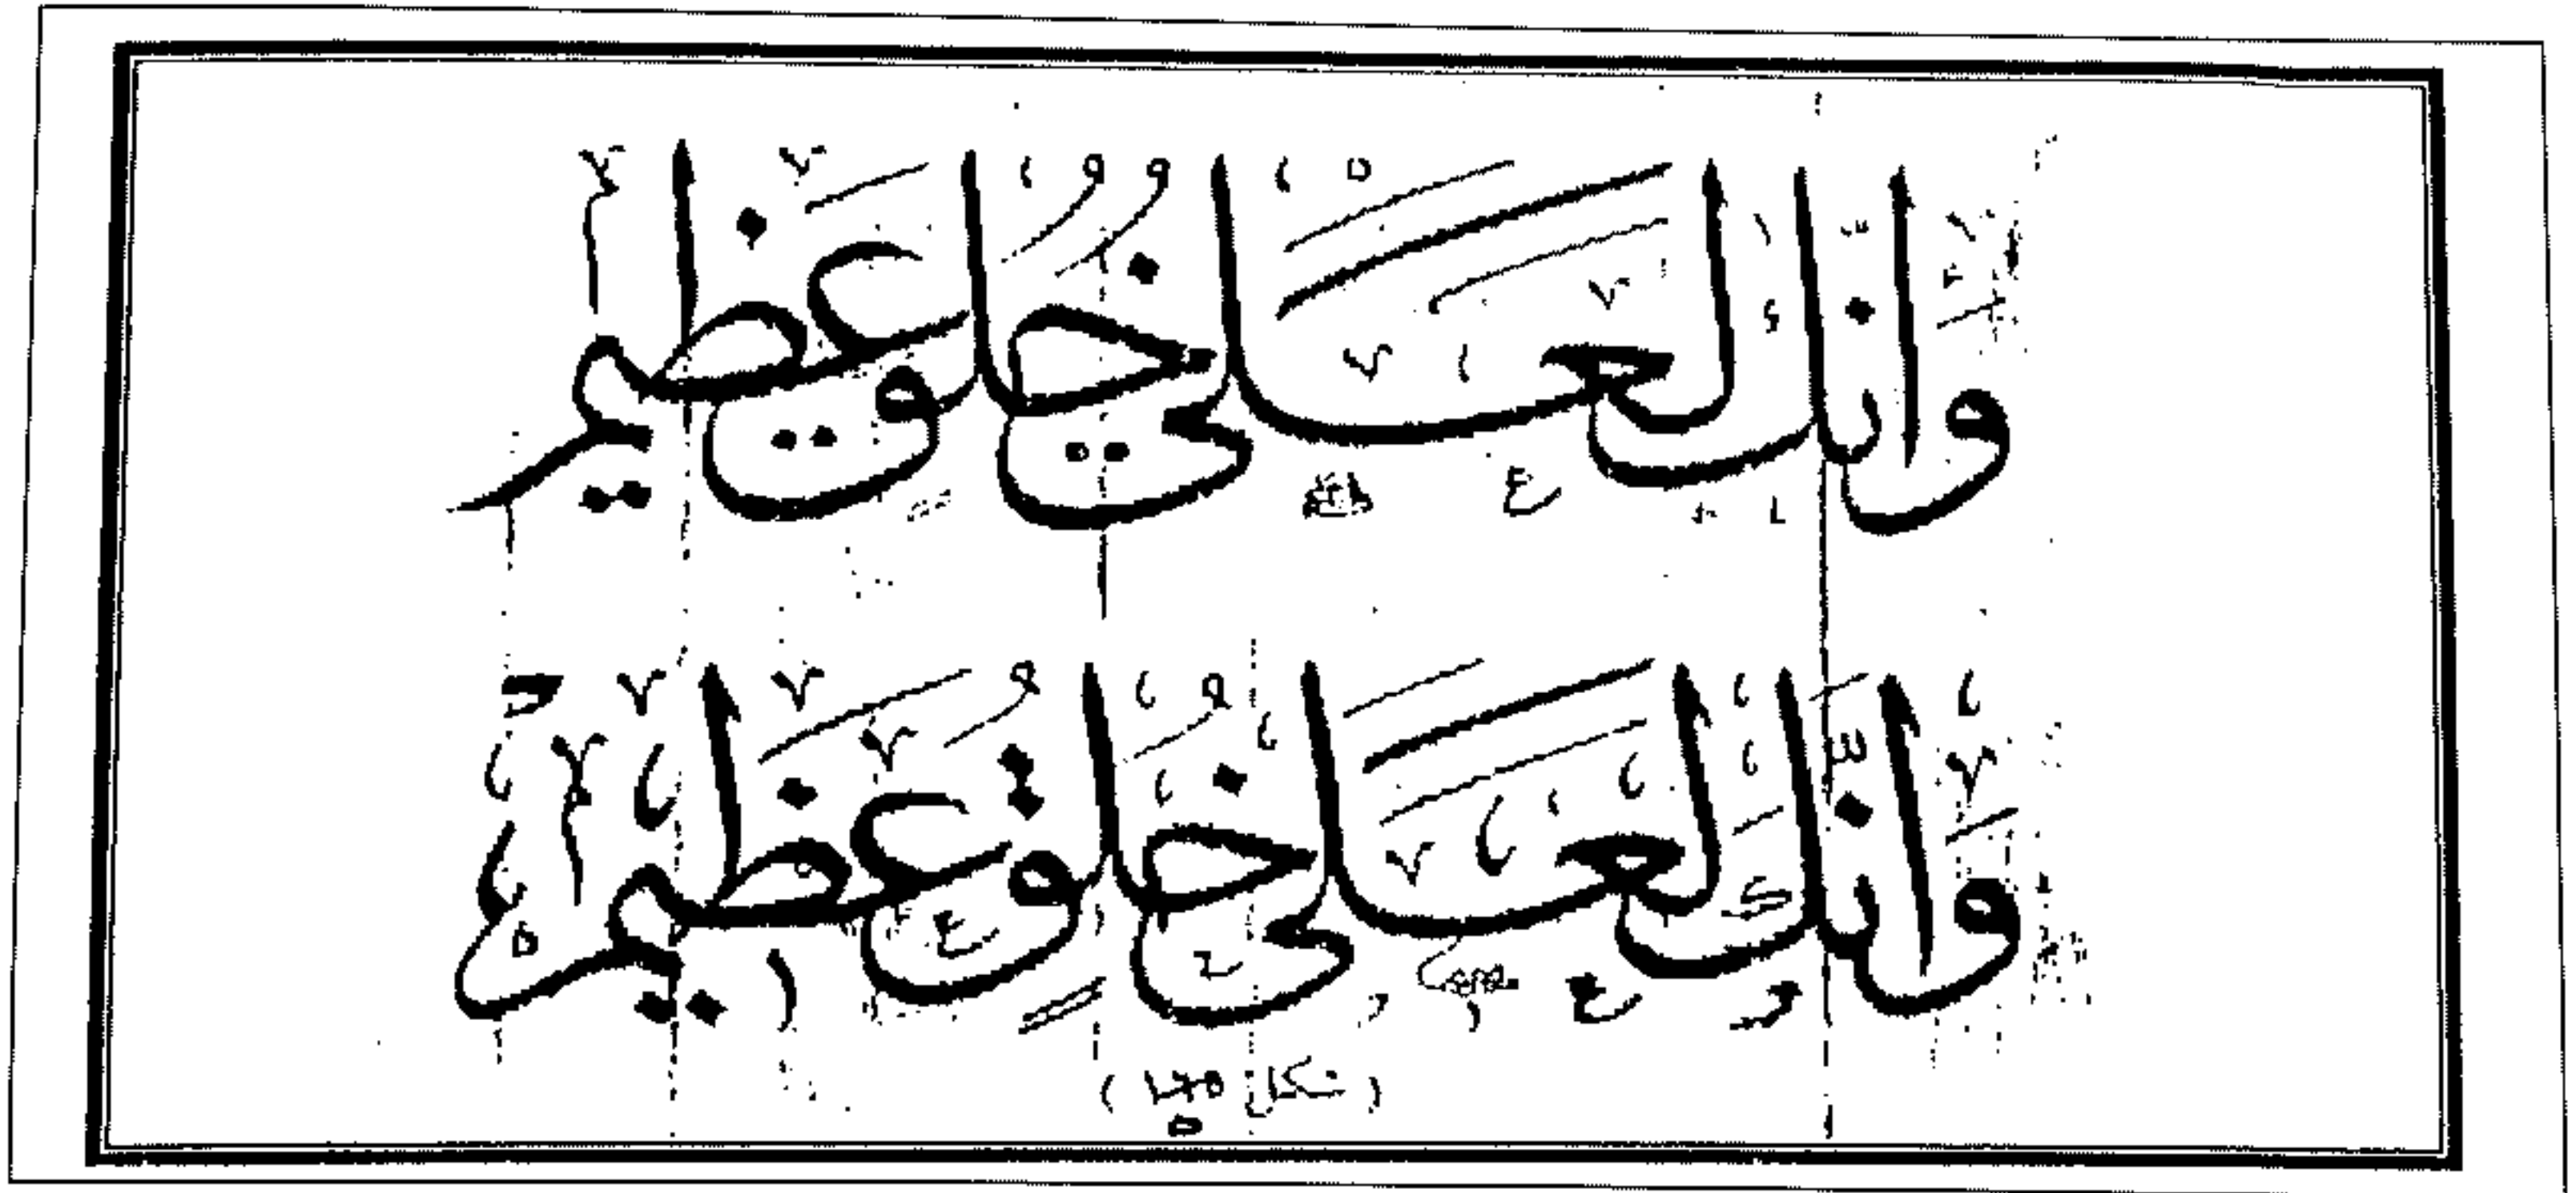 وانك لعلى خلق عظيم
وانك لعلى خلق عظيم
(شكل